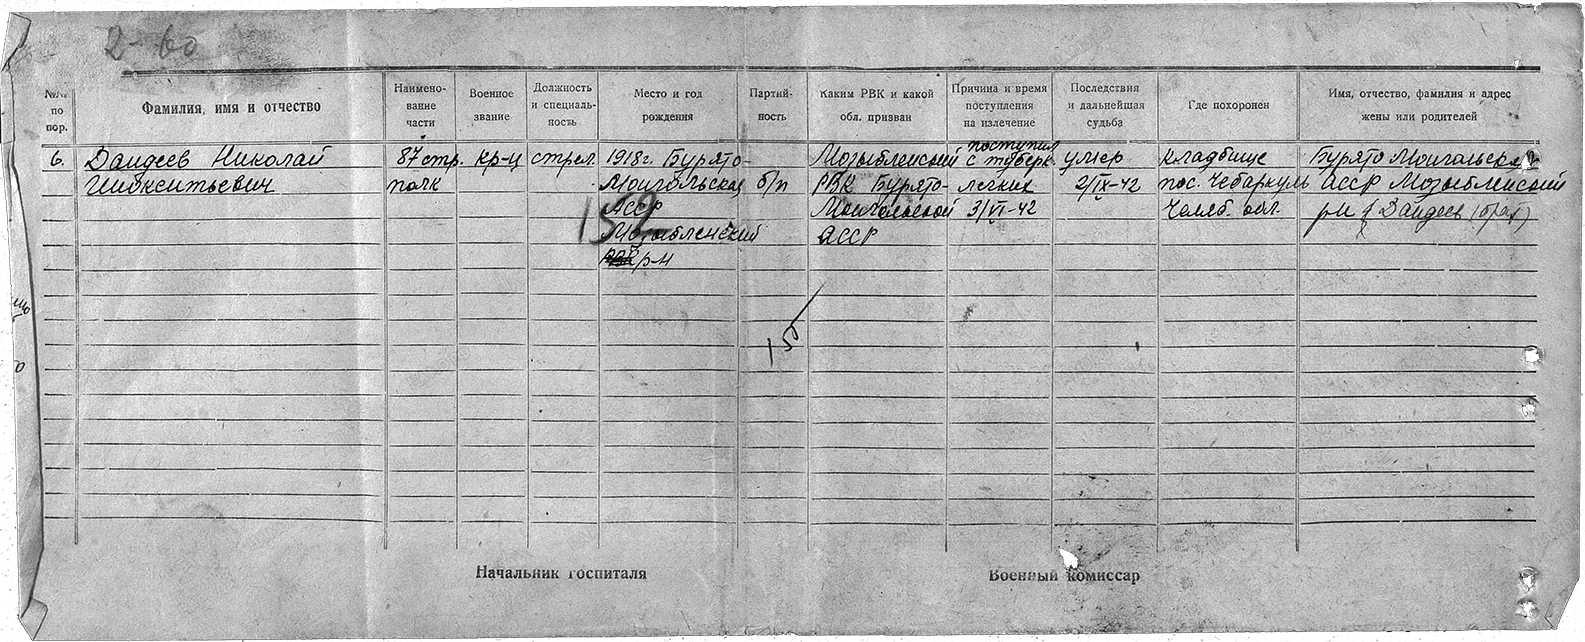 2-60
№№ по пор.
Фамилия, имя и отчество
Наимено-
вание
части
Военное
звание
Должность
и специаль-
ность
Место и год
рождения
Партий-
ность
Каким РВК и какой
обл. призван
Причина и время
поступления
на излечение
Последствия
и дальнейшая
судьба
Где похоронен
Имя, отчество, фамилия и адрес
жены или родителей
6.
Дандеев Николай
Инокентьевич
87 стр.
полк
кр-ц
стрел.
1918г. Бурято-
Монгольская
АССР
Мозыбленский
р-н
б/п
Мозыбленский
РВК Бурято-
Монгольской
АССР
поступил
с туберк.
легких
3/VI-42
умер
2/IX-42
кладбище
пос. Чебаркуль
Челяб. обл.
Бурято Монгольская
АССР Мозыбленский
р-н Дандеев (брат)
150
Начальник госпиталя
Военный комиссар